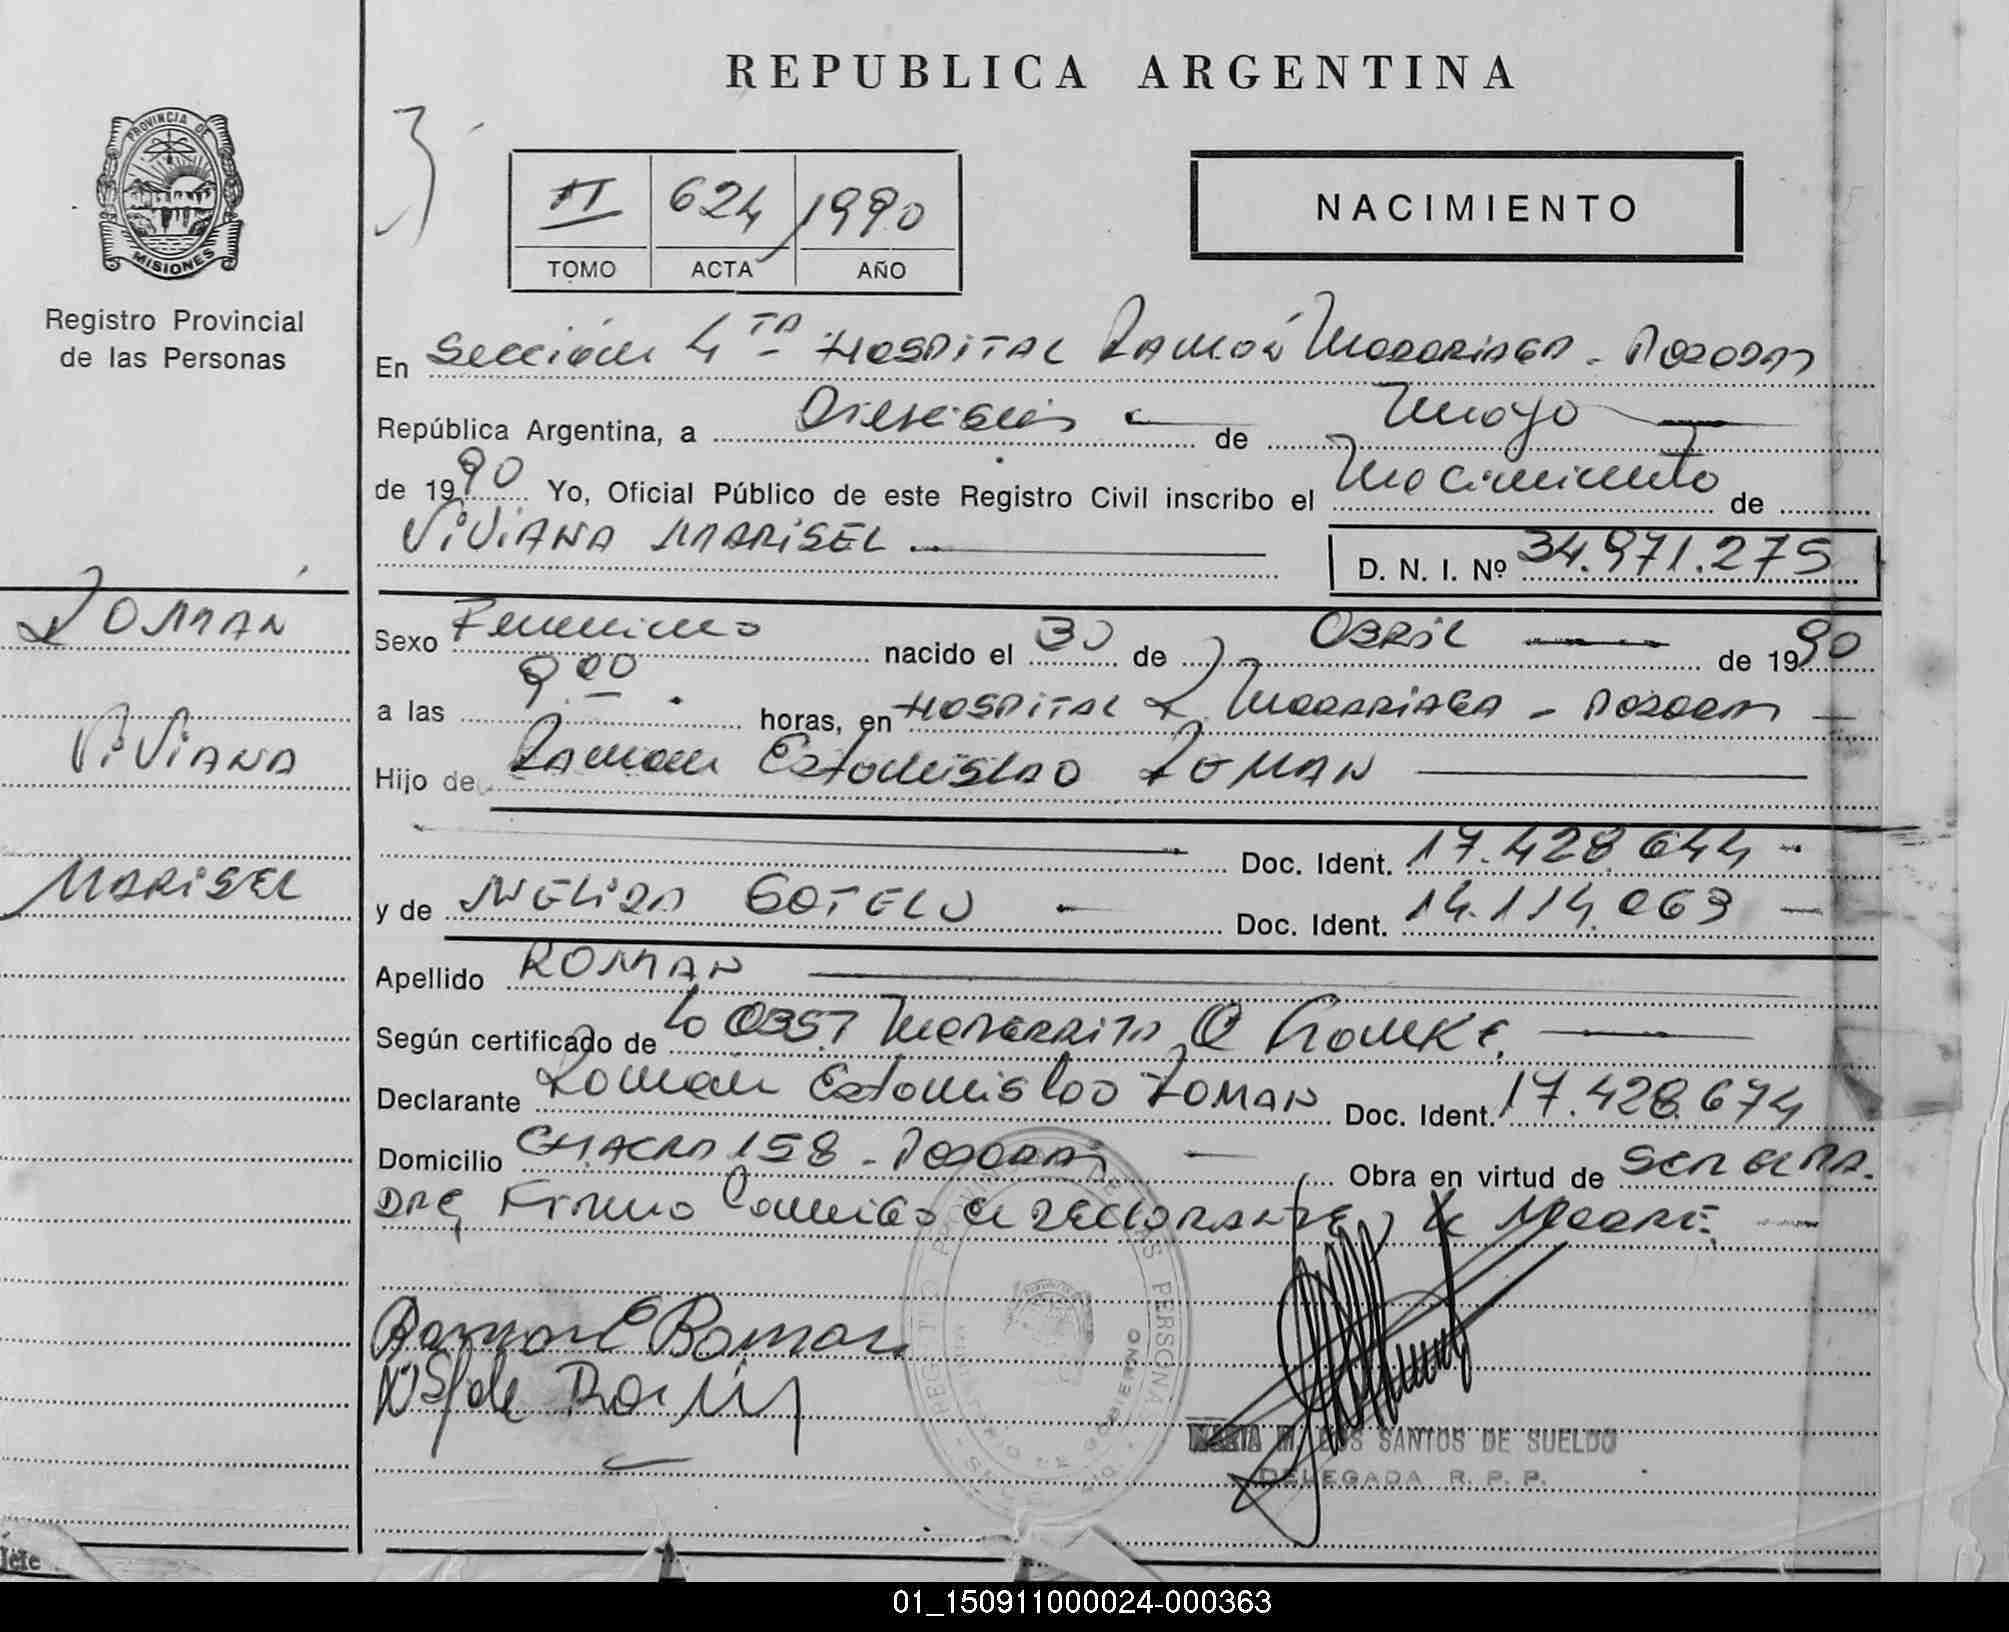 REPUBLICA ARGENTINA
PROVINCIA DE
MISIONES
Registro Provincial
de las Personas
II 624 1990
TOMO ACTA AÑO
NACIMIENTO
En Sección 4TA HOSPITAL RAMÓN MADARIAGA - POSADAS
República Argentina, a Dieciséis de Mayo
de 1990 Yo, Oficial Público de este Registro Civil inscribo el Nacimiento de
VIVIANA MARISEL
D. N. I. Nº 34.971.275
ROMÁN
VIVIANA
MARISEL
Sexo Femenino nacido el 30 de ABRIL de 1990
a las 9.00 horas, en HOSPITAL R. MADARIAGA - POSADAS
Hijo de Ramón Estanislao ROMAN
Doc. Ident. 17.428.644
y de NÉLIDA SOTELO Doc. Ident. 14.114.063
Apellido ROMAN
Según certificado de la OBST MARGARITA
Declarante Román Estanislao ROMAN Doc. Ident. 17.428.674
Domicilio CHACRA 158 - POSADAS Obra en virtud de SER EL PA-
DRE, Firma Conmigo el DECLARANTE y la MADRE,
Ramon E Roman
MARIA M. DOS SANTOS DE SUELDO
DELEGADA R. P. P.
Jefe
01_150911000024-000363